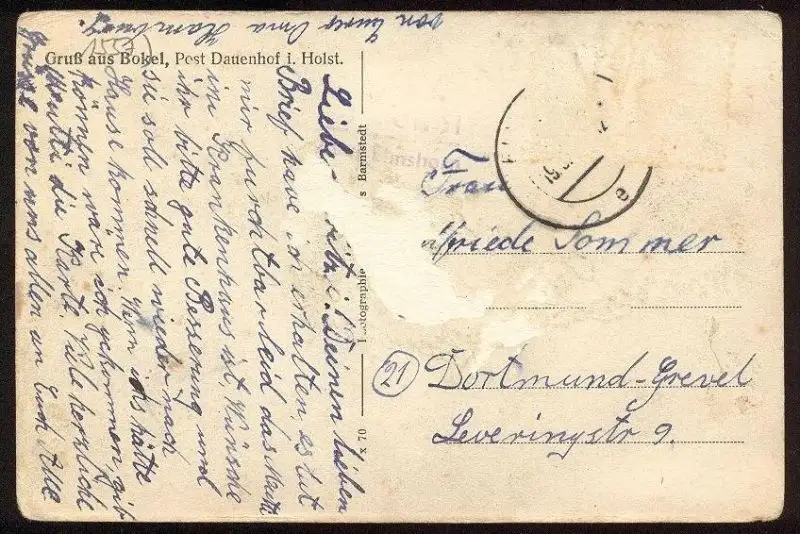 Gruß aus Bokel, Post Dauenhof i. Holst.
Liebe Deinen lieben
Brief habe ich erhalten, es tut
mir furchtbar leid das Mutti
im Krankenhaus ist Wünsche
ihr bitte gute Besserung und
sie soll schnell wieder nach
Hause kommen. Wenn ich hätte
können wäre ich gekommen, gib
Mutti die Karte Viele herzliche
Grüße von uns allen an Euch Alle
von Eurer Oma Hamburg.
s Barmstedt
Photographie
x 70
Frau
friede Sommer
21 Dortmund-Grevel
Leveringstr 9.